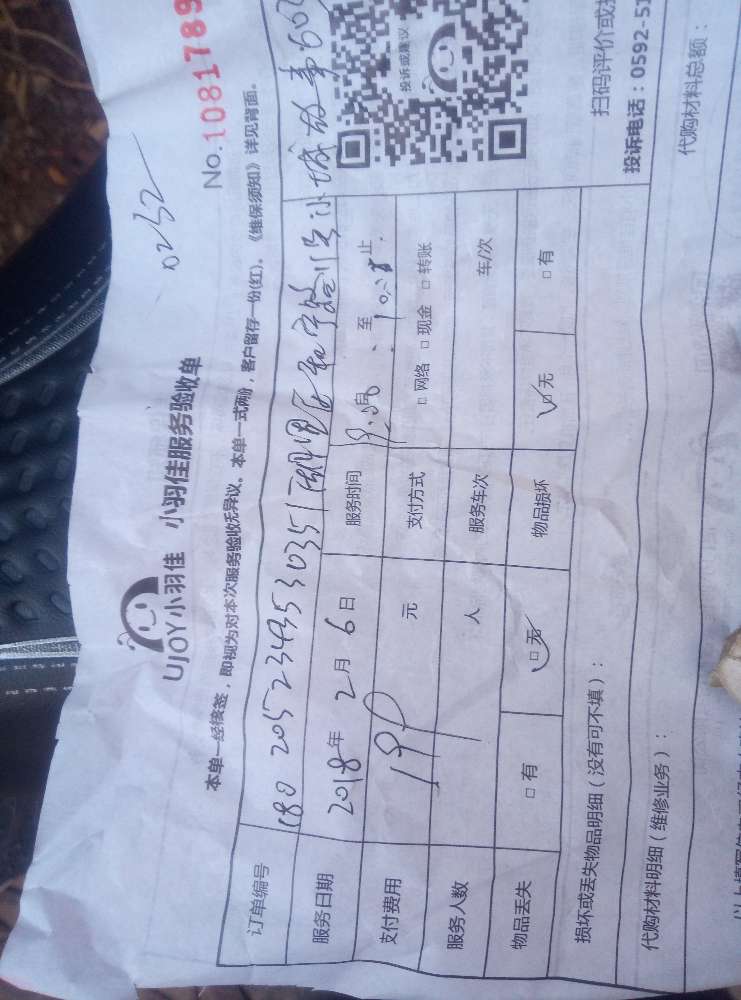 0252
No.1081789
UJOY小羽佳 小羽佳服务验收单
本单一经核签，即视为对本次服务验收无异议。本单一式两份，客户留存一份(红)。《维保须知》详见背面。
订单编号 180205234953035
服务日期 2018年2月6日 服务时间 至 止
支付费用 199 元 支付方式 □网络 □现金 □转账
服务人数 1 人 服务车次 车/次
物品丢失 □有 □无 物品损坏 □无 □有
损坏或丢失物品明细（没有可不填）：
代购材料明细（维修业务）：
代购材料总额：
投诉或建议
扫码评价或
投诉电话：0592-51